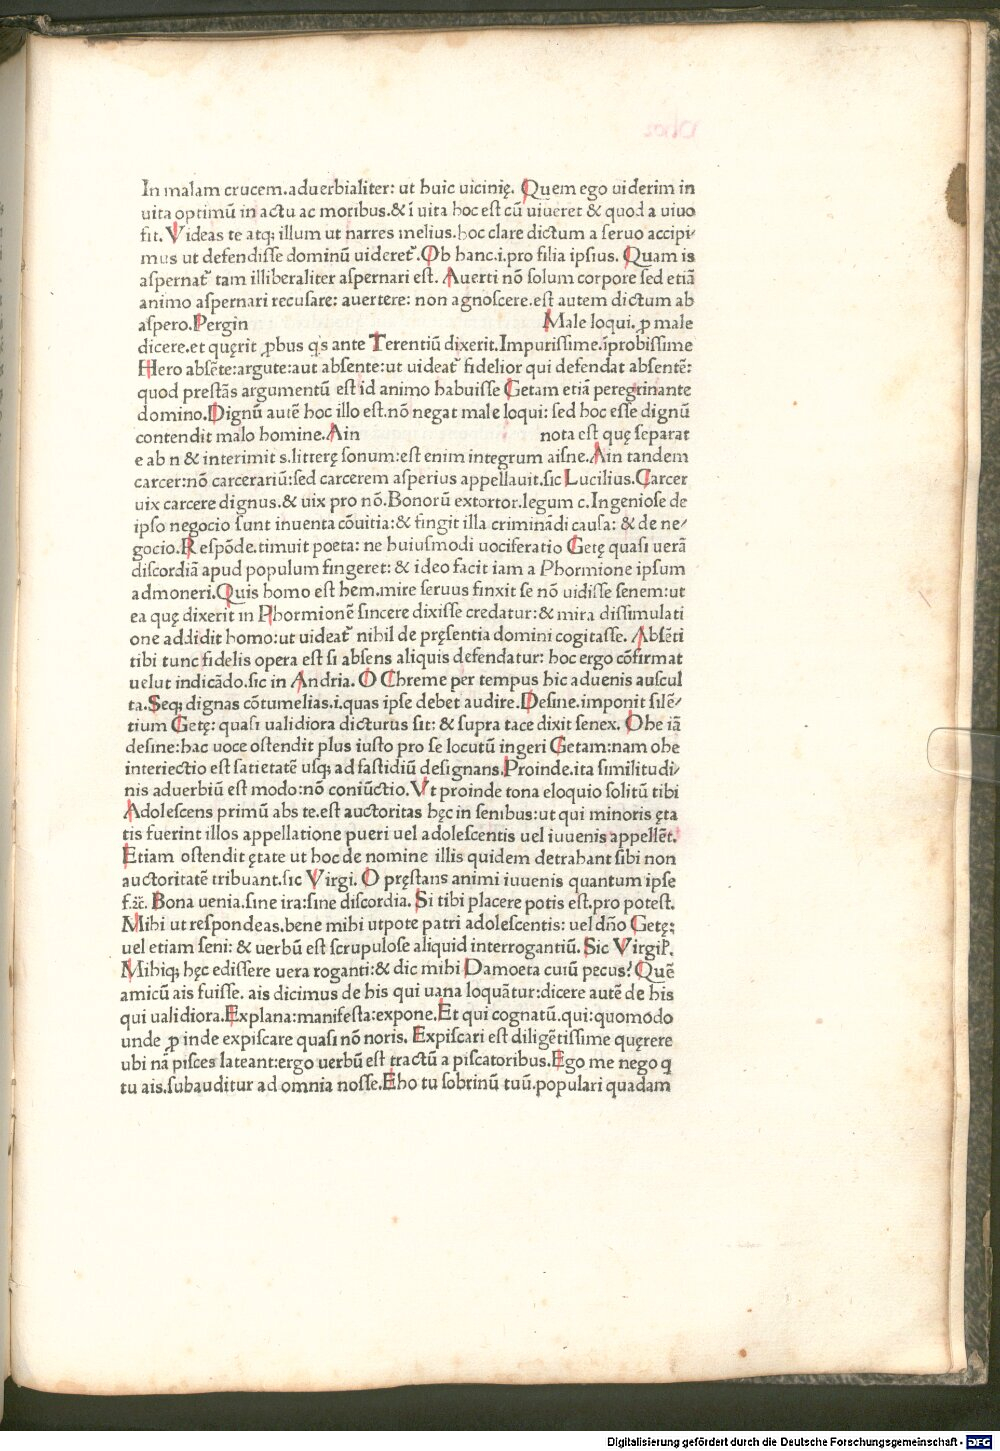 In malam crucem.aduerbialiter: ut huic uicinię. Quem ego uiderim in
uita optimū in actu ac moribus.& ī uita hoc est cū uiueret & quod a uiuo
fit. Videas te atq; illum ut narres melius.hoc clare dictum a seruo accipi⸗
mus ut defendisse dominū uideret᷑. Ob hanc.i.pro filia ipsius. Quam is
aspernat᷑ tam illiberaliter aspernari est. Auerti nō solum corpore sed etiā
animo aspernari recusare: auertere: non agnoscere.est autem dictum ab
aspero.Pergin Male loqui. ꝓ male
dicere.et quęrit ꝓbus q̇s ante Terentiū dixerit.Impurissime.īprobissime
Hero absēte:argute:aut absente:ut uideat᷑ fidelior qui defendat absentē:
quod prestās argumentū est id animo habuisse Getam etiā peregrinante
domino.Dignū autē hoc illo est.nō negat male loqui: sed hoc esse dignū
contendit malo homine.Ain nota est quę separat
e ab n & interimit s.litterę sonum:est enim integrum aisne.Ain tandem
carcer:nō carcerariū:sed carcerem asperius appellauit.sic Lucilius.Carcer
uix carcere dignus.& uix pro nō.Bonorū extortor.legum c.Ingeniose de
ipso negocio sunt inuenta cōuitia:& fingit illa criminādi causa: & de ne⸗
gocio.Respōde.timuit poeta: ne huiusmodi uociferatio Getę quasi uerā
discordiā apud populum fingeret: & ideo facit iam a Phormione ipsum
admoneri.Quis homo est hem.mire seruus finxit se nō uidisse senem:ut
ea quę dixerit in Phormionē sincere dixisse credatur:& mira dissimulati
one addidit homo:ut uideat᷑ nihil de pręsentia domini cogitasse. Absēti
tibi tunc fidelis opera est si absens aliquis defendatur: hoc ergo cōfirmat
uelut indicādo.sic in Andria. O Chreme per tempus hic aduenis auscul
ta.Seq; dignas cōtumelias.i.quas ipse debet audire.Desine.imponit silē⸗
tium Getę: quasi ualidiora dicturus sit: & supra tace dixit senex. Ohe iā
desine:hac uoce ostendit plus iusto pro se locutū ingeri Getam:nam ohe
interiectio est satietatē usq; ad fastidiū designans.Proinde.ita similitudi⸗
nis aduerbiū est modo:nō coniūctio.Vt proinde tona eloquio solitū tibi
Adolescens primū abs te.est auctoritas hęc in senibus:ut qui minoris ęta
tis fuerint illos appellatione pueri uel adolescentis uel iuuenis appellēt.
Etiam ostendit ętate ut hoc de nomine illis quidem detrahant sibi non
auctoritatē tribuant.sic Virgi. O pręstans animi iuuenis quantum ipse
f.⁊c̄. Bona uenia.sine ira:sine discordia. Si tibi placere potis est.pro potest.
Mihi ut respondeas.bene mihi utpote patri adolescentis: uel dño Getę:
uel etiam seni: & uerbū est scrupulose aliquid interrogantiū. Sic Virgil᷑.
Mihiq; hęc edissere uera roganti:& dic mihi Damoeta cuiū pecus? Quē
amicū ais fuisse. ais dicimus de his qui uana loquātur:dicere autē de his
qui ualidiora.Explana:manifesta:expone.Et qui cognatū.qui:quomodo
unde ꝓ inde expiscare quasi nō noris. Expiscari est diligētissime quęrere
ubi nā pisces lateant:ergo uerbū est tractū a piscatoribus.Ego me nego q̇
tu ais.subauditur ad omnia nosse.Eho tu sobrinū tuū.populari quadam
Digitalisierung gefördert durch die Deutsche Forschungsgemeinschaft - DFG